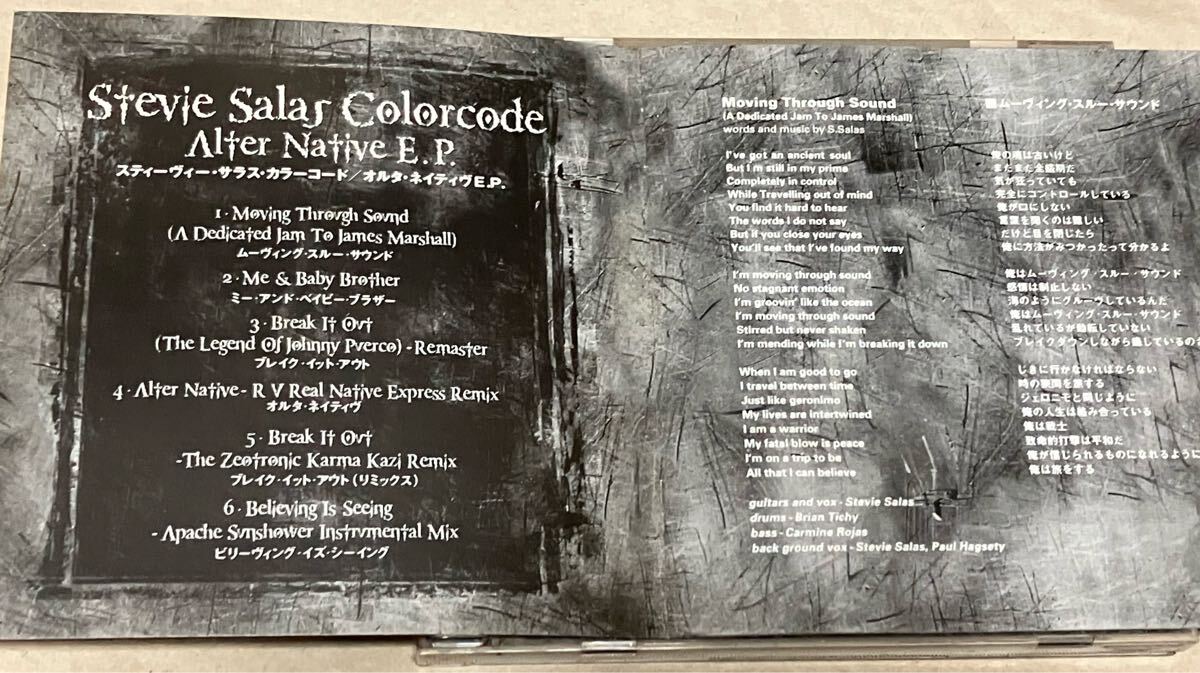 Stevie Salas Colorcode
Alter Native E.P.
スティーヴィー・サラス・カラーコード／オルタ・ネイティヴE.P.
1・Moving Through Sound
(A Dedicated Jam To James Marshall)
ムーヴィング・スルー・サウンド
2・Me & Baby Brother
ミー・アンド・ベイビー・ブラザー
3・Break It Out
(The Legend Of Johnny Pverco) -Remaster
ブレイク・イット・アウト
4・Alter Native- R V Real Native Express Remix
オルタ・ネイティヴ
5・Break It Out
-The Zeotronic Karma Kazi Remix
ブレイク・イット・アウト(リミックス)
6・Believing Is Seeing
- Apache Sunshower Instrumental Mix
ビリーヴィング・イズ・シーイング
Moving Through Sound
(A Dedicated Jam To James Marshall)
words and music by S.Salas
I've got an ancient soul
But I'm still in my prime
Completely in control
While Travelling out of mind
You find it hard to hear
The words I do not say
But if you close your eyes
You'll see that I've found my way
I'm moving through sound
No stagnant emotion
I'm groovin' like the ocean
I'm moving through sound
Stirred but never shaken
I'm mending while I'm breaking it down
When I am good to go
I travel between time
Just like geronimo
My lives are intertwined
I am a warrior
My fatal blow is peace
I'm on a trip to be
All that I can believe
guitars and vox - Stevie Salas
drums - Brian Tichy
bass - Carmine Rojas
back ground vox - Stevie Salas, Paul Hagsety
■ムーヴィング・スルー・サウンド
俺の魂は古いけど
まだまだ全盛期だ
気が狂っていても
完全にコントロールしている
俺が口にしない
言葉を聞くのは難しい
だけど目を閉じたら
俺に方法がみつかったって分かるよ
俺はムーヴィング・スルー・サウンド
感情は制止しない
海のようにグルーヴしているんだ
俺はムーヴィング・スルー・サウンド
乱れているが動転していない
ブレイクダウンしながら癒しているのさ
じきに行かなければならない
時の狭間を旅する
ジェロニモと同じように
俺の人生は絡み合っている
俺は戦士
致命的打撃は平和だ
俺が信じられるものになれるように
俺は旅をする